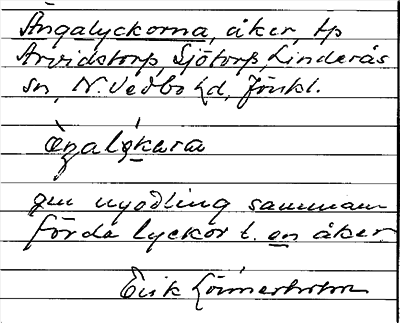 Ängalyckorna, åker, tp
Arvidstorp, Sjötorp, Linderås
sn, N. Vedbo hd, Jönkl.
gm nyodling samman-
förda lyckor t. en åker
Erik Lönnerholm